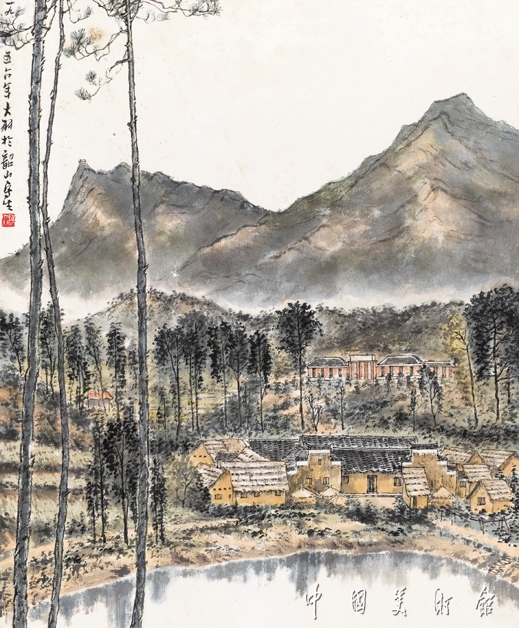 一九五六年大羽於韶山寫生
中國美術館